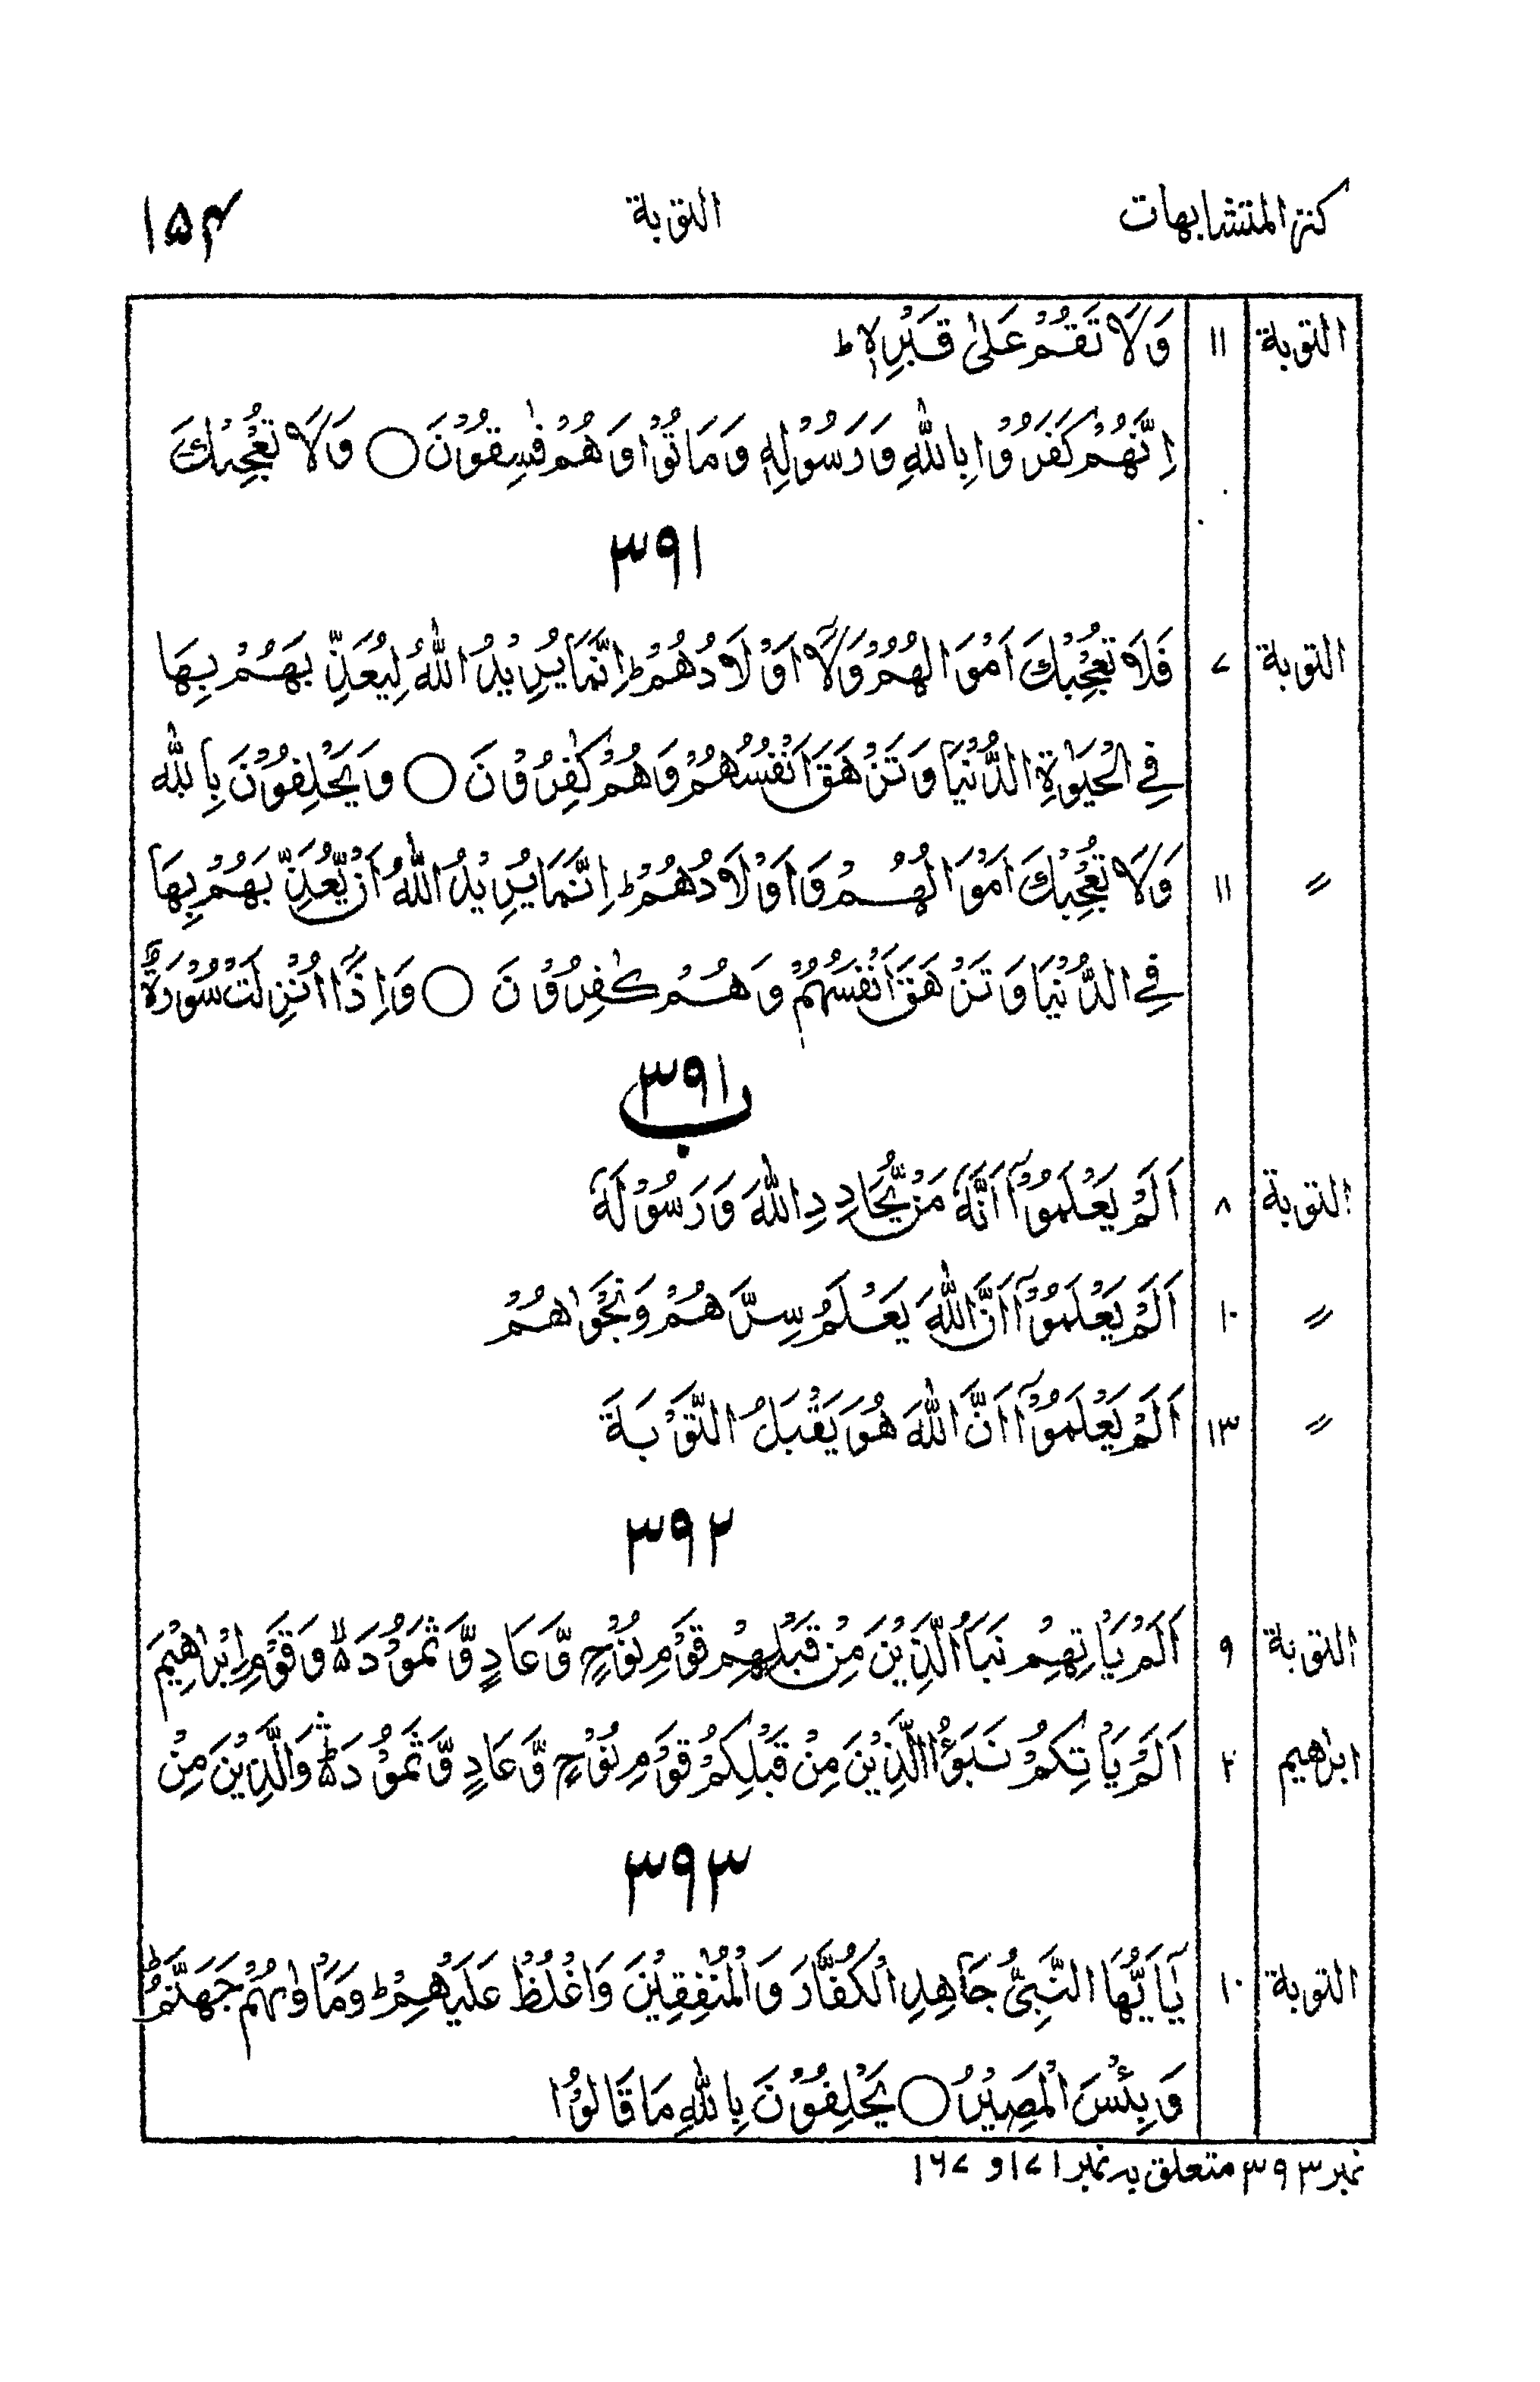 كنز المتشابهات التوبة ۱۵۴
التوبة ۱۱ وَلَا تَقُمْ عَلٰى قَبْرِهٖ ؕ
اِنَّهُمْ كَفَرُوْا بِاللّٰهِ وَرَسُوْلِهٖ وَمَاتُوْا وَهُمْ فٰسِقُوْنَ ○ وَلَا تُعْجِبْكَ
۳۹۱
التوبة ۷ فَلَا تُعْجِبْكَ اَمْوَالُهُمْ وَلَآ اَوْلَادُهُمْ ؕ اِنَّمَا يُرِيْدُ اللّٰهُ لِيُعَذِّبَهُمْ بِهَا
فِي الْحَيٰوةِ الدُّنْيَا وَتَزْهَقَ اَنْفُسُهُمْ وَهُمْ كٰفِرُوْنَ ○ وَيَحْلِفُوْنَ بِاللّٰهِ
〃 ۱۱ وَلَا تُعْجِبْكَ اَمْوَالُهُمْ وَاَوْلَادُهُمْ ؕ اِنَّمَا يُرِيْدُ اللّٰهُ اَنْ يُّعَذِّبَهُمْ بِهَا
فِي الدُّنْيَا وَتَزْهَقَ اَنْفُسُهُمْ وَهُمْ كٰفِرُوْنَ ○ وَاِذَآ اُنْزِلَتْ سُوْرَةٌ
۳۹۱ ب
التوبة ۸ اَلَمْ يَعْلَمُوْٓا اَنَّهٗ مَنْ يُّحَادِدِ اللّٰهَ وَرَسُوْلَهٗ
〃 ۱۰ اَلَمْ يَعْلَمُوْٓا اَنَّ اللّٰهَ يَعْلَمُ سِرَّهُمْ وَنَجْوٰىهُمْ
〃 ۱۳ اَلَمْ يَعْلَمُوْٓا اَنَّ اللّٰهَ هُوَ يَقْبَلُ التَّوْبَةَ
۳۹۲
التوبة ۹ اَلَمْ يَاْتِهِمْ نَبَاُ الَّذِيْنَ مِنْ قَبْلِهِمْ قَوْمِ نُوْحٍ وَّعَادٍ وَّثَمُوْدَ ۙ۬ وَقَوْمِ اِبْرٰهِيْمَ
ابراهيم ۲ اَلَمْ يَاْتِكُمْ نَبَؤُا الَّذِيْنَ مِنْ قَبْلِكُمْ قَوْمِ نُوْحٍ وَّعَادٍ وَّثَمُوْدَ ؕۛ وَالَّذِيْنَ مِنْ
۳۹۳
التوبة ۱۰ يٰٓاَيُّهَا النَّبِيُّ جَاهِدِ الْكُفَّارَ وَالْمُنٰفِقِيْنَ وَاغْلُظْ عَلَيْهِمْ ؕ وَمَاْوٰىهُمْ جَهَنَّمُ ؕ
وَبِئْسَ الْمَصِيْرُ ○ يَحْلِفُوْنَ بِاللّٰهِ مَا قَالُوْا
نمبر ۳۹۳ متعلق به نمبر ۱۷۱ و ۱۶۷